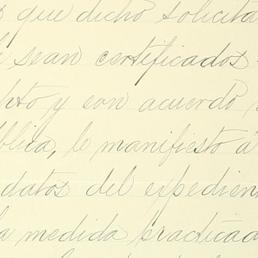 que dicho solicita
sean certificados
y con acuerdo
blica, le manifiesto á
datos del expedien
a medida practicad